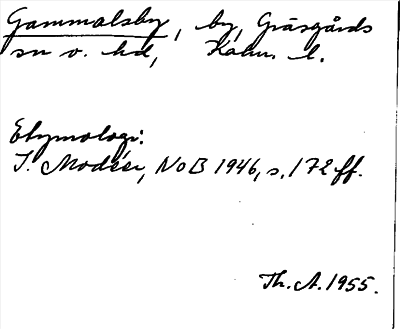 Gammalsby, by, Gräsgårds
sn o. hd, Kalm. l.
Etymologi:
I. Modéer, NoB 1946, s. 172 ff.
Th. A. 1955.